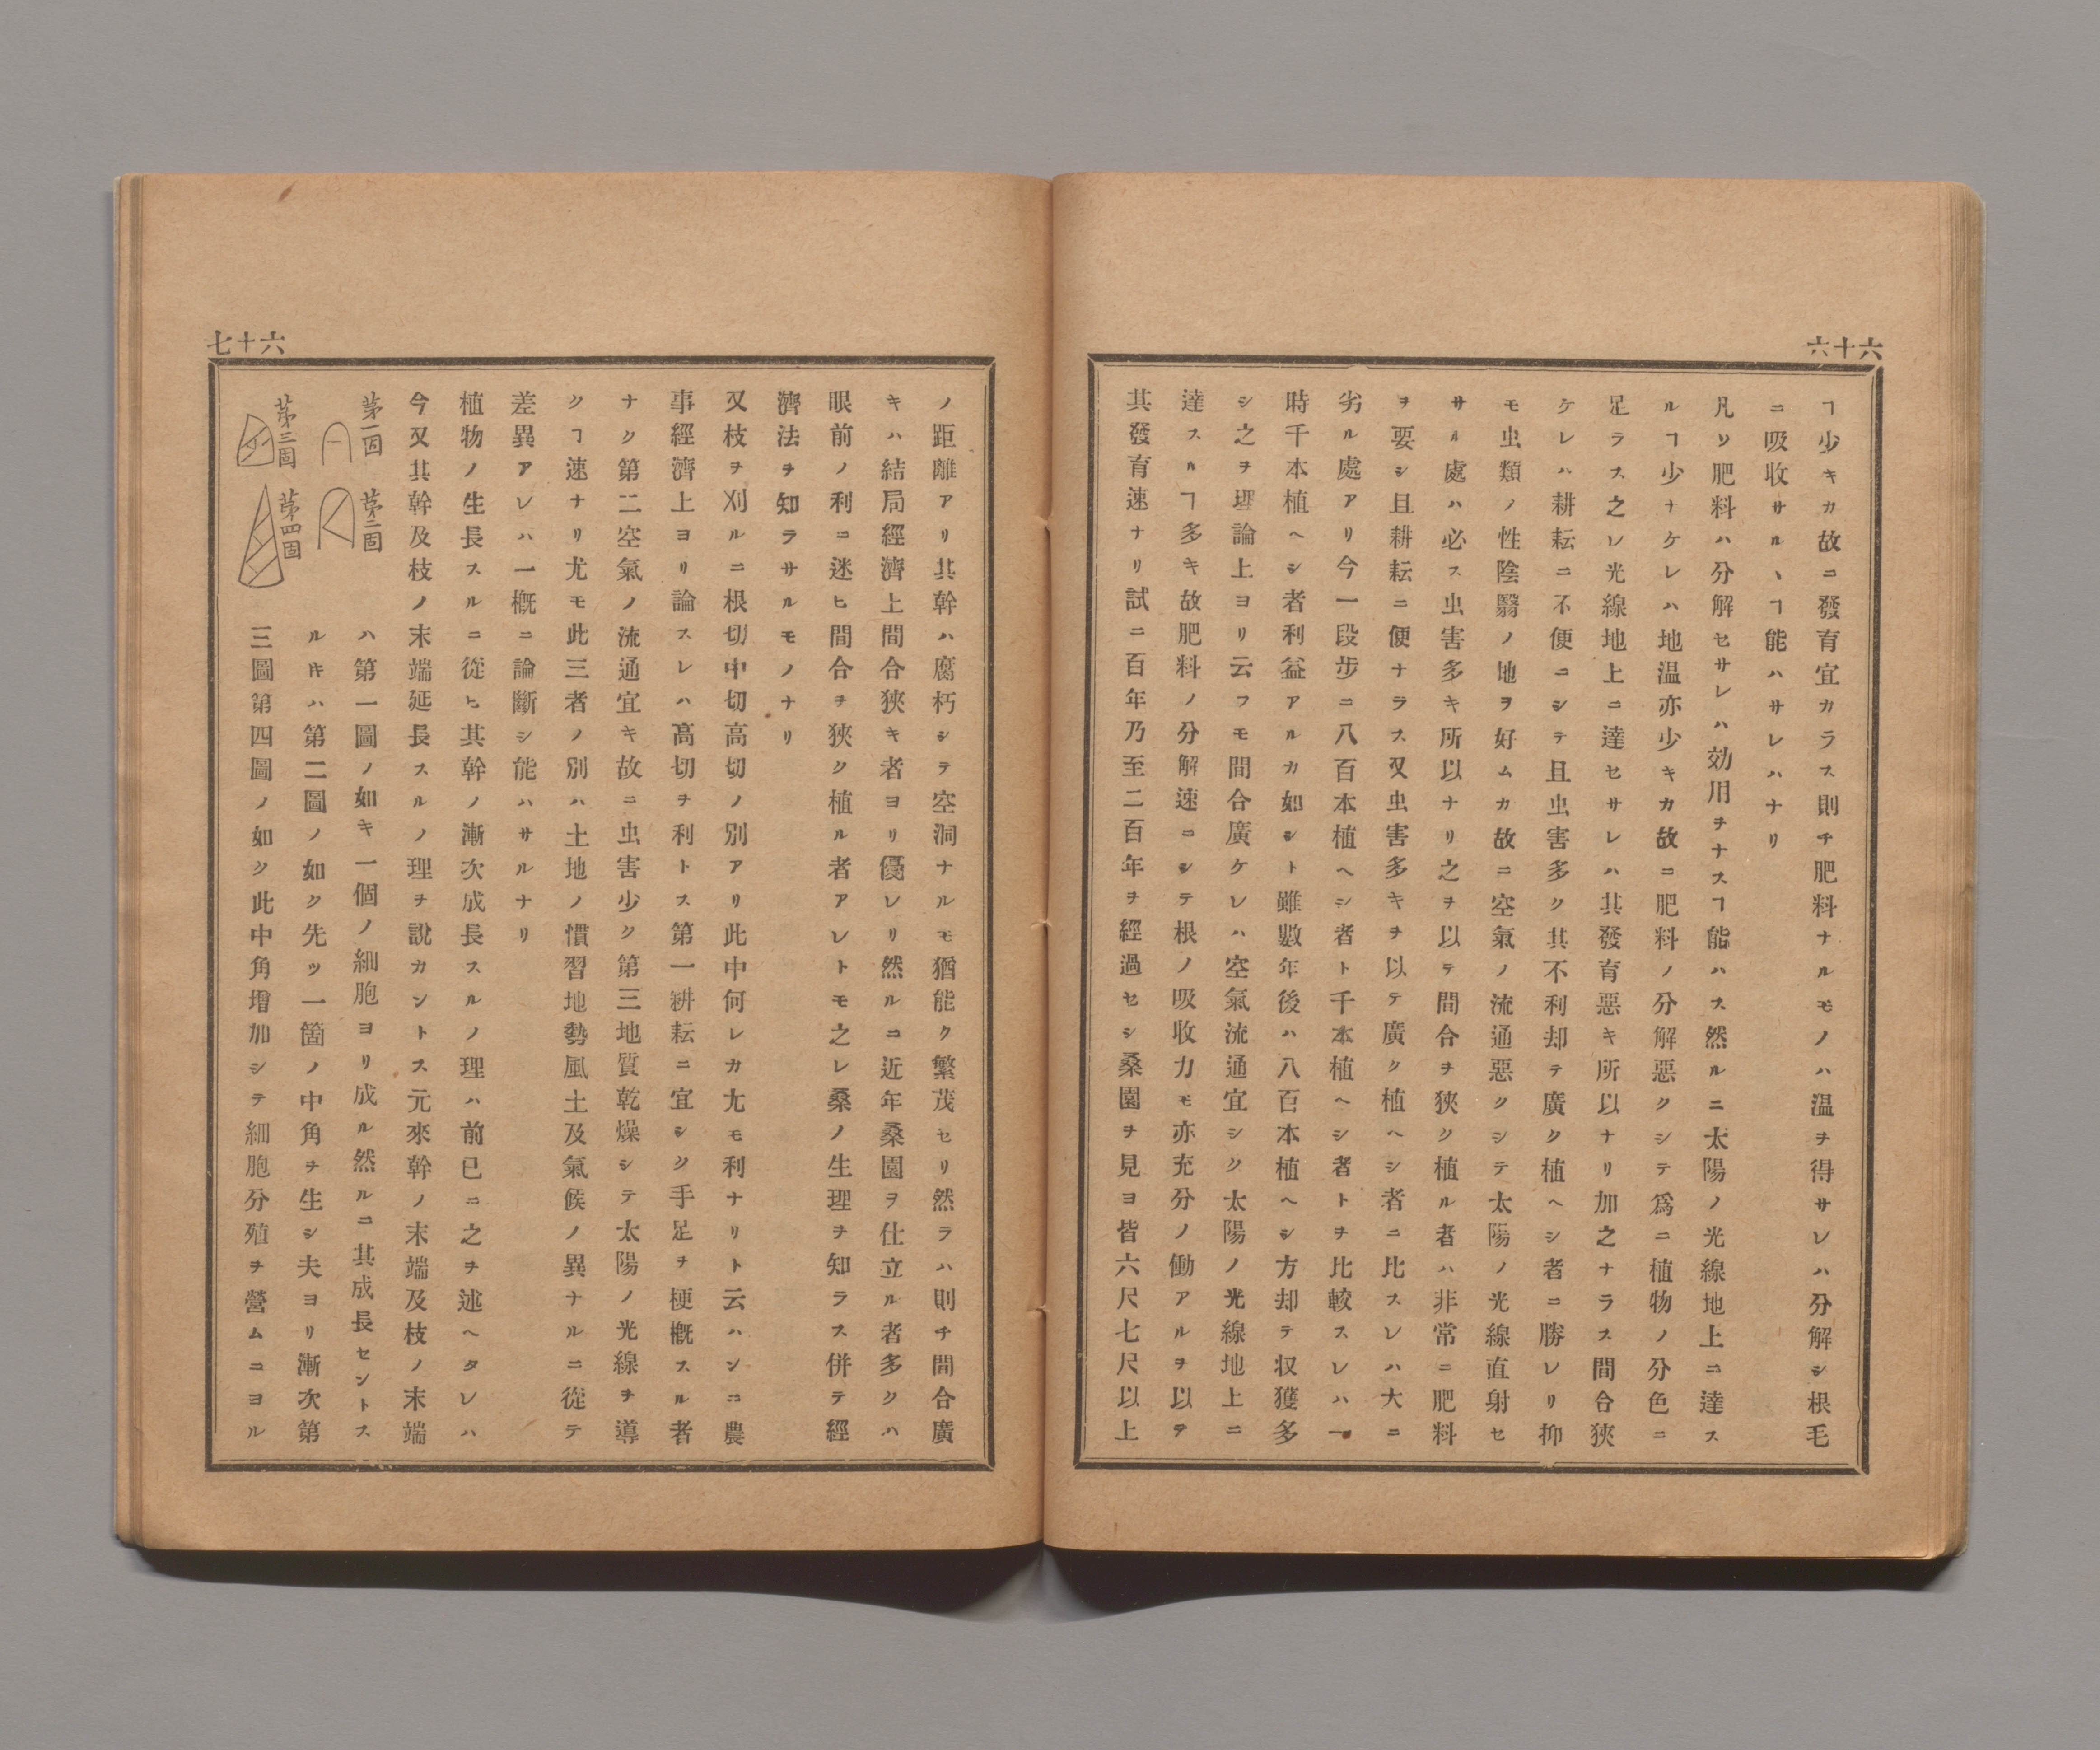 六十六
ヿ少キカ故ニ發育宜カラス則チ肥料ナルモノハ温ヲ得サレハ分解シ根毛
ニ吸收サルヽヿ能ハサレハナリ
凡ソ肥料ハ分解セサレハ効用ヲナスヿ能ハス然ルニ太陽ノ光線地上ニ達ス
ルヿ少ナケレハ地温亦少キカ故ニ肥料ノ分解惡クシテ爲ニ植物ノ分色ニ
足ラス之レ光線地上ニ達セサレハ其發育惡キ所以ナリ加之ナラス間合狹
ケレハ耕耘ニ不便ニシテ且虫害多ク其不利却テ廣ク植ヘシ者ニ勝レリ抑
モ虫類ノ性陰翳ノ地ヲ好ムカ故ニ空氣ノ流通惡クシテ太陽ノ光線直射セ
サル處ハ必ス虫害多キ所以ナリ之ヲ以テ間合ヲ狹ク植ル者ハ非常ニ肥料
ヲ要シ且耕耘ニ便ナラス又虫害多キヲ以テ廣ク植ヘシ者ニ比スレハ大ニ
劣ル處アリ今一段步ニ八百本植ヘシ者ト千本植ヘシ者トヲ比較スレハ一
時千本植ヘシ者利益アルカ如シト雖數年後ハ八百本植ヘシ方却テ収獲多
シ之ヲ理論上ヨリ云フモ間合廣ケレハ空氣流通宜シク太陽ノ光線地上ニ
達スルヿ多キ故肥料ノ分解速ニシテ根ノ吸收力モ亦充分ノ働アルヲ以テ
其發育速ナリ試ニ百年乃至二百年ヲ經過セシ桑園ヲ見ヨ皆六尺七尺以上
六十七
ノ距離アリ其幹ハ腐朽シテ空洞ナルモ猶能ク繁茂セリ然ラハ則チ間合廣
キハ結局經濟上間合狹キ者ヨリ優レリ然ルニ近年桑園ヲ仕立ル者多クハ
眼前ノ利ニ迷ヒ間合ヲ狹ク植ル者アレトモ之レ桑ノ生理ヲ知ラス併テ經
濟法ヲ知ラサルモノナリ
又枝ヲ刈ルニ根切中切高切ノ別アリ此中何レカ尤モ利ナリト云ハンニ農
事經濟上ヨリ論スレハ高切ヲ利トス第一耕耘ニ宜シク手足ヲ梗概スル者
ナク第二空氣ノ流通宜キ故ニ虫害少ク第三地質乾燥シテ太陽ノ光線ヲ導
クヿ速ナリ尤モ此三者ノ別ハ土地ノ慣習地勢風土及氣候ノ異ナルニ從テ
差異アレハ一概ニ論斷シ能ハサルナリ
植物ノ生長スルニ從ヒ其幹ノ漸次成長スルノ理ハ前已ニ之ヲ述ヘタレハ
今又其幹及枝ノ末端延長スルノ理ヲ說カントス元來幹ノ末端及枝ノ末端
第一図
第二図
ハ第一圖ノ如キ一個ノ細胞ヨリ成ル然ルニ其成長セントス
ルキハ第二圖ノ如ク先ツ一箇ノ中角ヲ生シ夫ヨリ漸次第
第三図
第四図
三圖第四圖ノ如ク此中角增加シテ細胞分殖ヲ營ムニヨル